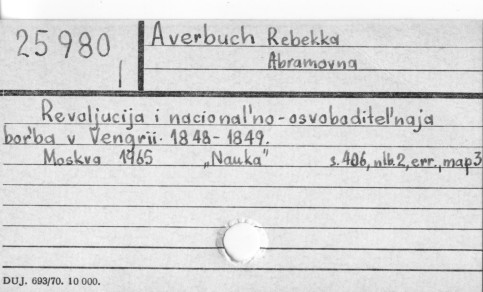 25980
I
Averbuch Rebekka
Abramovna
Revoljucija i nacional'no-osvoboditel'naja
bor'ba v Vengrii. 1848-1849.
Moskva 1965 „Nauka" s. 406, nlb. 2, err., map 3
DUJ. 693/70. 10 000.